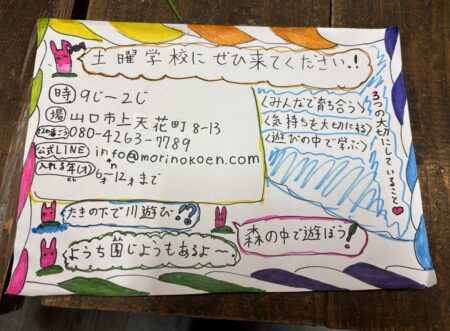 土曜学校にぜひ来てください!!
時 9じ〜2じ
場 山口市上天花町8-13
080-4263-7789
公式LINE info@morinokoen.com
入れる年(才) 6才〜12才まで
3つの大切にしていること
〈みんなで育ち合う〉
〈気持ちを大切にする〉
〈遊びの中で学ぶ〉
たきの下で川遊び!?
森の中で遊ぼう!
ようち園じょうもあるよ〜